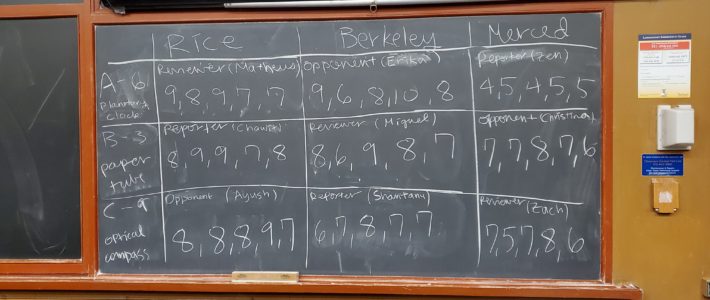 Rice Berkeley Merced
A-6
Planning
clock
Reviewer (Matheus)
9,8,9,7,7
Opponent (Erika)
9,6,8,10,8
Reporter (Zen)
4,5,4,5,5
B-3
paper
tube
Reporter
8,9,9,7,8
Reviewer (Miguel)
8,6,9,8,7
Opponent (Christina)
7,7,8,7,6
C-9
optical
compass
Opponent (Ayush)
8,8,8,9,7
Reporter (Shantanu)
6,7,8,7,7
Reviewer
(Zach)
7,5,7,8,6